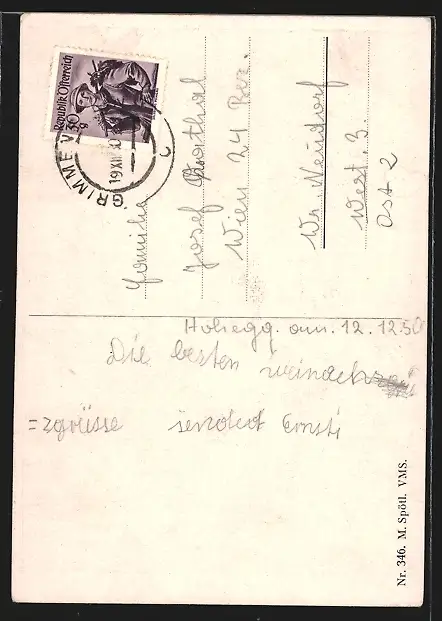 Republik Österreich
30 g
GRIMMEN
19 XII 50
C
Familie
Josef Korthal
Wien 24 Bez.
Wr. Neudorf
West. 3.
Ost 2
Hohegg. am. 12. 12. 50
Die besten weinach
=zgrüsse sendet Ernsti
Nr. 346. M. Spötl. VMS.